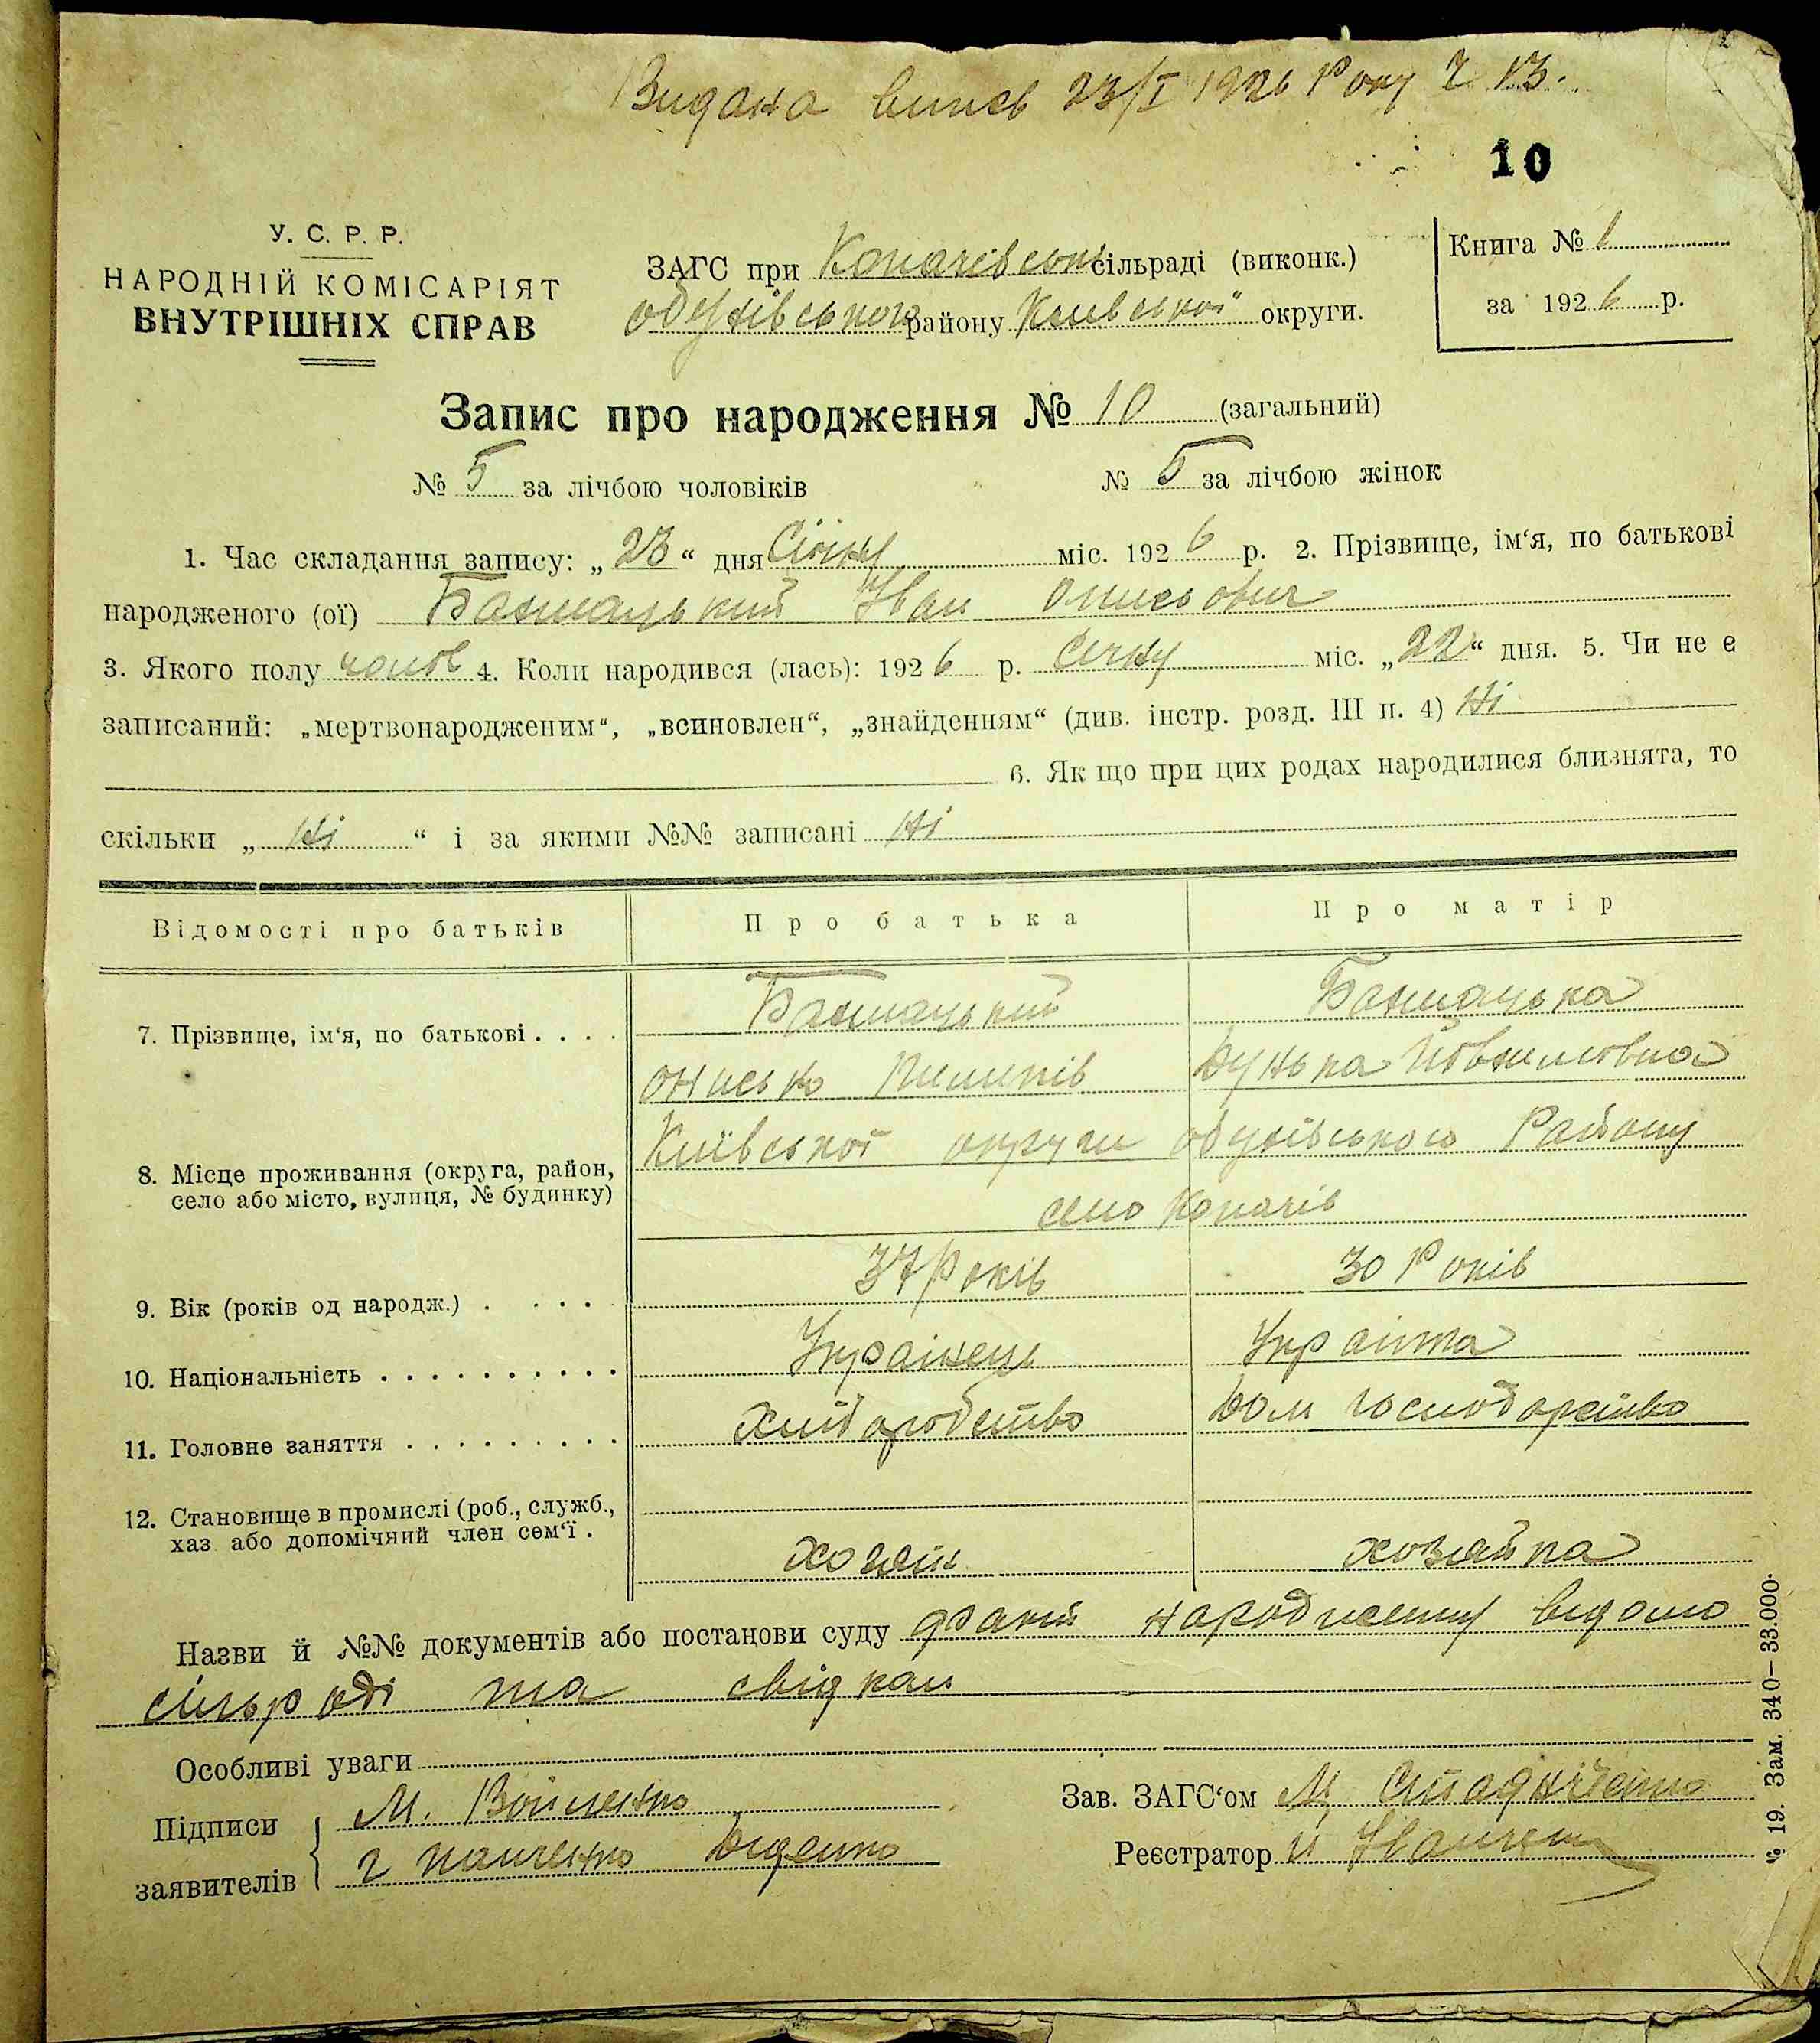 Видана випсь 23/I 1926 Року Ч 13.
10
У. С. Р. Р.
НАРОДНІЙ КОМІСАРІЯТ
ВНУТРІШНІХ СПРАВ
ЗАГС при Копачівські сільраді (виконк.)
обухівського району Київської округи.
Книга № 1
за 1926 р.
Запис про народження № 10 (загальний)
№ 5 за лічбою чоловіків № 5 за лічбою жінок
1. Час складання запису: „23“ дня Січну міс. 1926 р. 2. Прізвище, ім‘я, по батькові
народженого (ої) Бахмацький Іван Онисьович
3. Якого полу чолов 4. Коли народився (лась): 1926 р. Січну міс. „22“ дня. 5. Чи не є
записаний: „мертвонародженим“, „всиновлен“, „знайденням“ (див. інстр. розд. III п. 4) Ні
6. Як що при цих родах народилися близнята, то
скільки „ Ні “ і за якими №№ записані Ні
Відомості про батьків Про батька Про матір
7. Прізвище, ім‘я, по батькові . . . . Бахмацький Бахмацька
онисько Пилипів Дунька
Київської округи обухівського Району
8. Місце проживання (округа, район,
село або місто, вулиця, № будинку)
село Копачів
9. Вік (років од народж.) . . . . 37 Років 30 Років
10. Національність . . . . . . . . . . Українець Українка
11. Головне заняття . . . . . . . . . Хліборобство Дом господарство
12. Становище в промислі (роб., служб.,
хаз або допомічний член сем‘ї .
хозяін хозяйка
Назви й №№ документів або постанови суду факт народженну відомо
сільраді та свідкам
Особливі уваги
Підписи
заявителів
М. Войленко
г панченко Диденко
Зав. ЗАГС‘ом М
Реєстратор И
№ 19. Зам. 340—33.000.